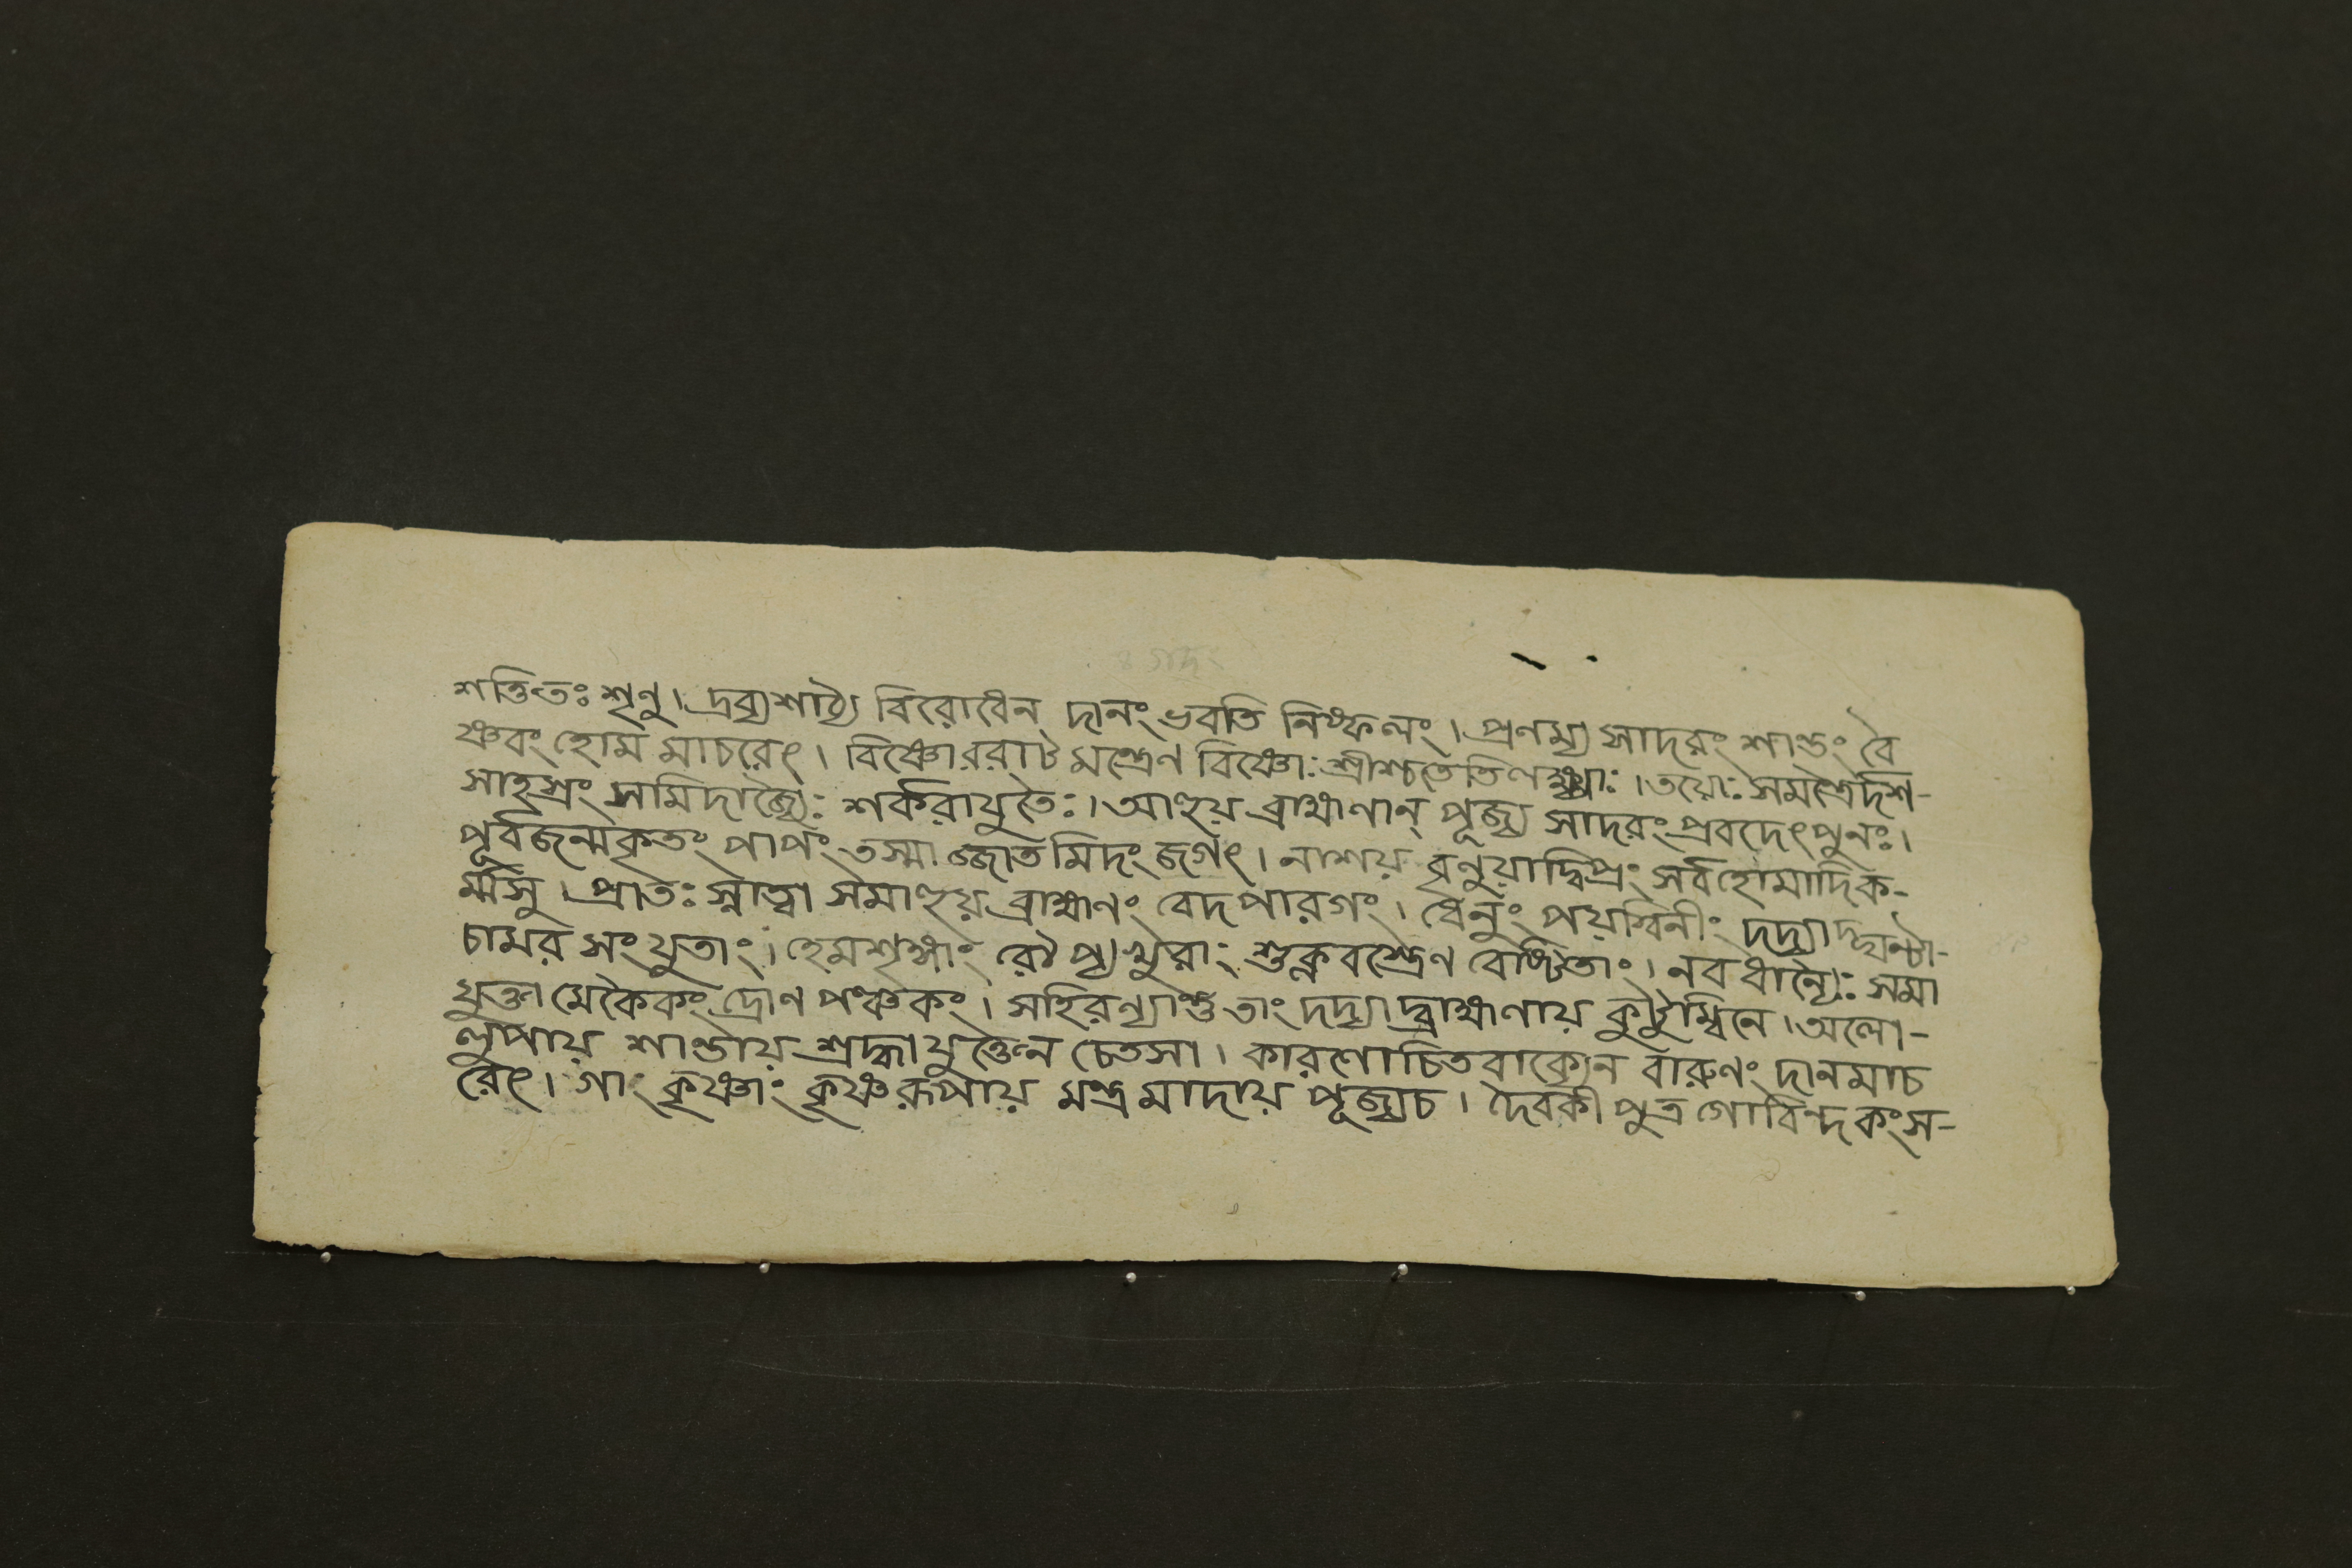 শক্তিতঃ শৃণু। দ্রব্যশাঠ্যৈ বিরোধেন দানং ভবতি নিষ্ফলং। প্রণম্য সাদরং শান্তং বৈ
ষ্ণবং হোম মাচরেৎ। বিষ্ণোররাট মন্ত্রেণ বিষ্ণোঃ শ্রীশ্চতেতি লক্ষ্ম্যাঃ। তয়োঃ সমন্ত্রৈর্দশ-
সাহস্রং সমিদাজ্যৈঃ শর্করাযুতৈঃ। আহুয় ব্রাহ্মণান্ পূজ্য সাদরং প্রবদেৎপুনঃ।
পূর্বজন্মকৃতং পাপং তস্মাজ্জাত মিদং জগৎ। নাশয় বৃণুয়াদ্বিপ্রং সর্বহোমাদিক-
র্ম্মসু। প্রাতঃ স্নাত্বা সমাহুয় ব্রাহ্মণং বেদপারগং। ধেনুং পয়স্বিনীং দদ্যাদ্ঘন্টা-
চামর সংযুতাং। হেমশৃঙ্গাং রৌপ্যখুরাং শুক্লবস্ত্রেণ বেষ্টিতাং। নবধান্যৈঃ সমা
যুক্তা মেকৈকং দ্রোণ পঞ্চকং। সহিরণ্যাপ্লুতাং দদ্যাদ্ব্রাহ্মণায় কুটুম্বিনে। অলো-
লুপায় শান্তায় শ্রদ্ধাযুক্তেন চেতসা। কারণোচিতবাক্যেন বারুণং দানমাচ
রেৎ। গাং কৃষ্ণাং কৃষ্ণরূপায় মন্ত্র মাদায় পূজ্যচ। দৈবকীপুত্র গোবিন্দ কংস-